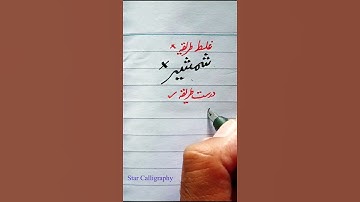 غلط طریقہ ×
شمشیر ×
درست طریقہ ✓
Star Calligraphy